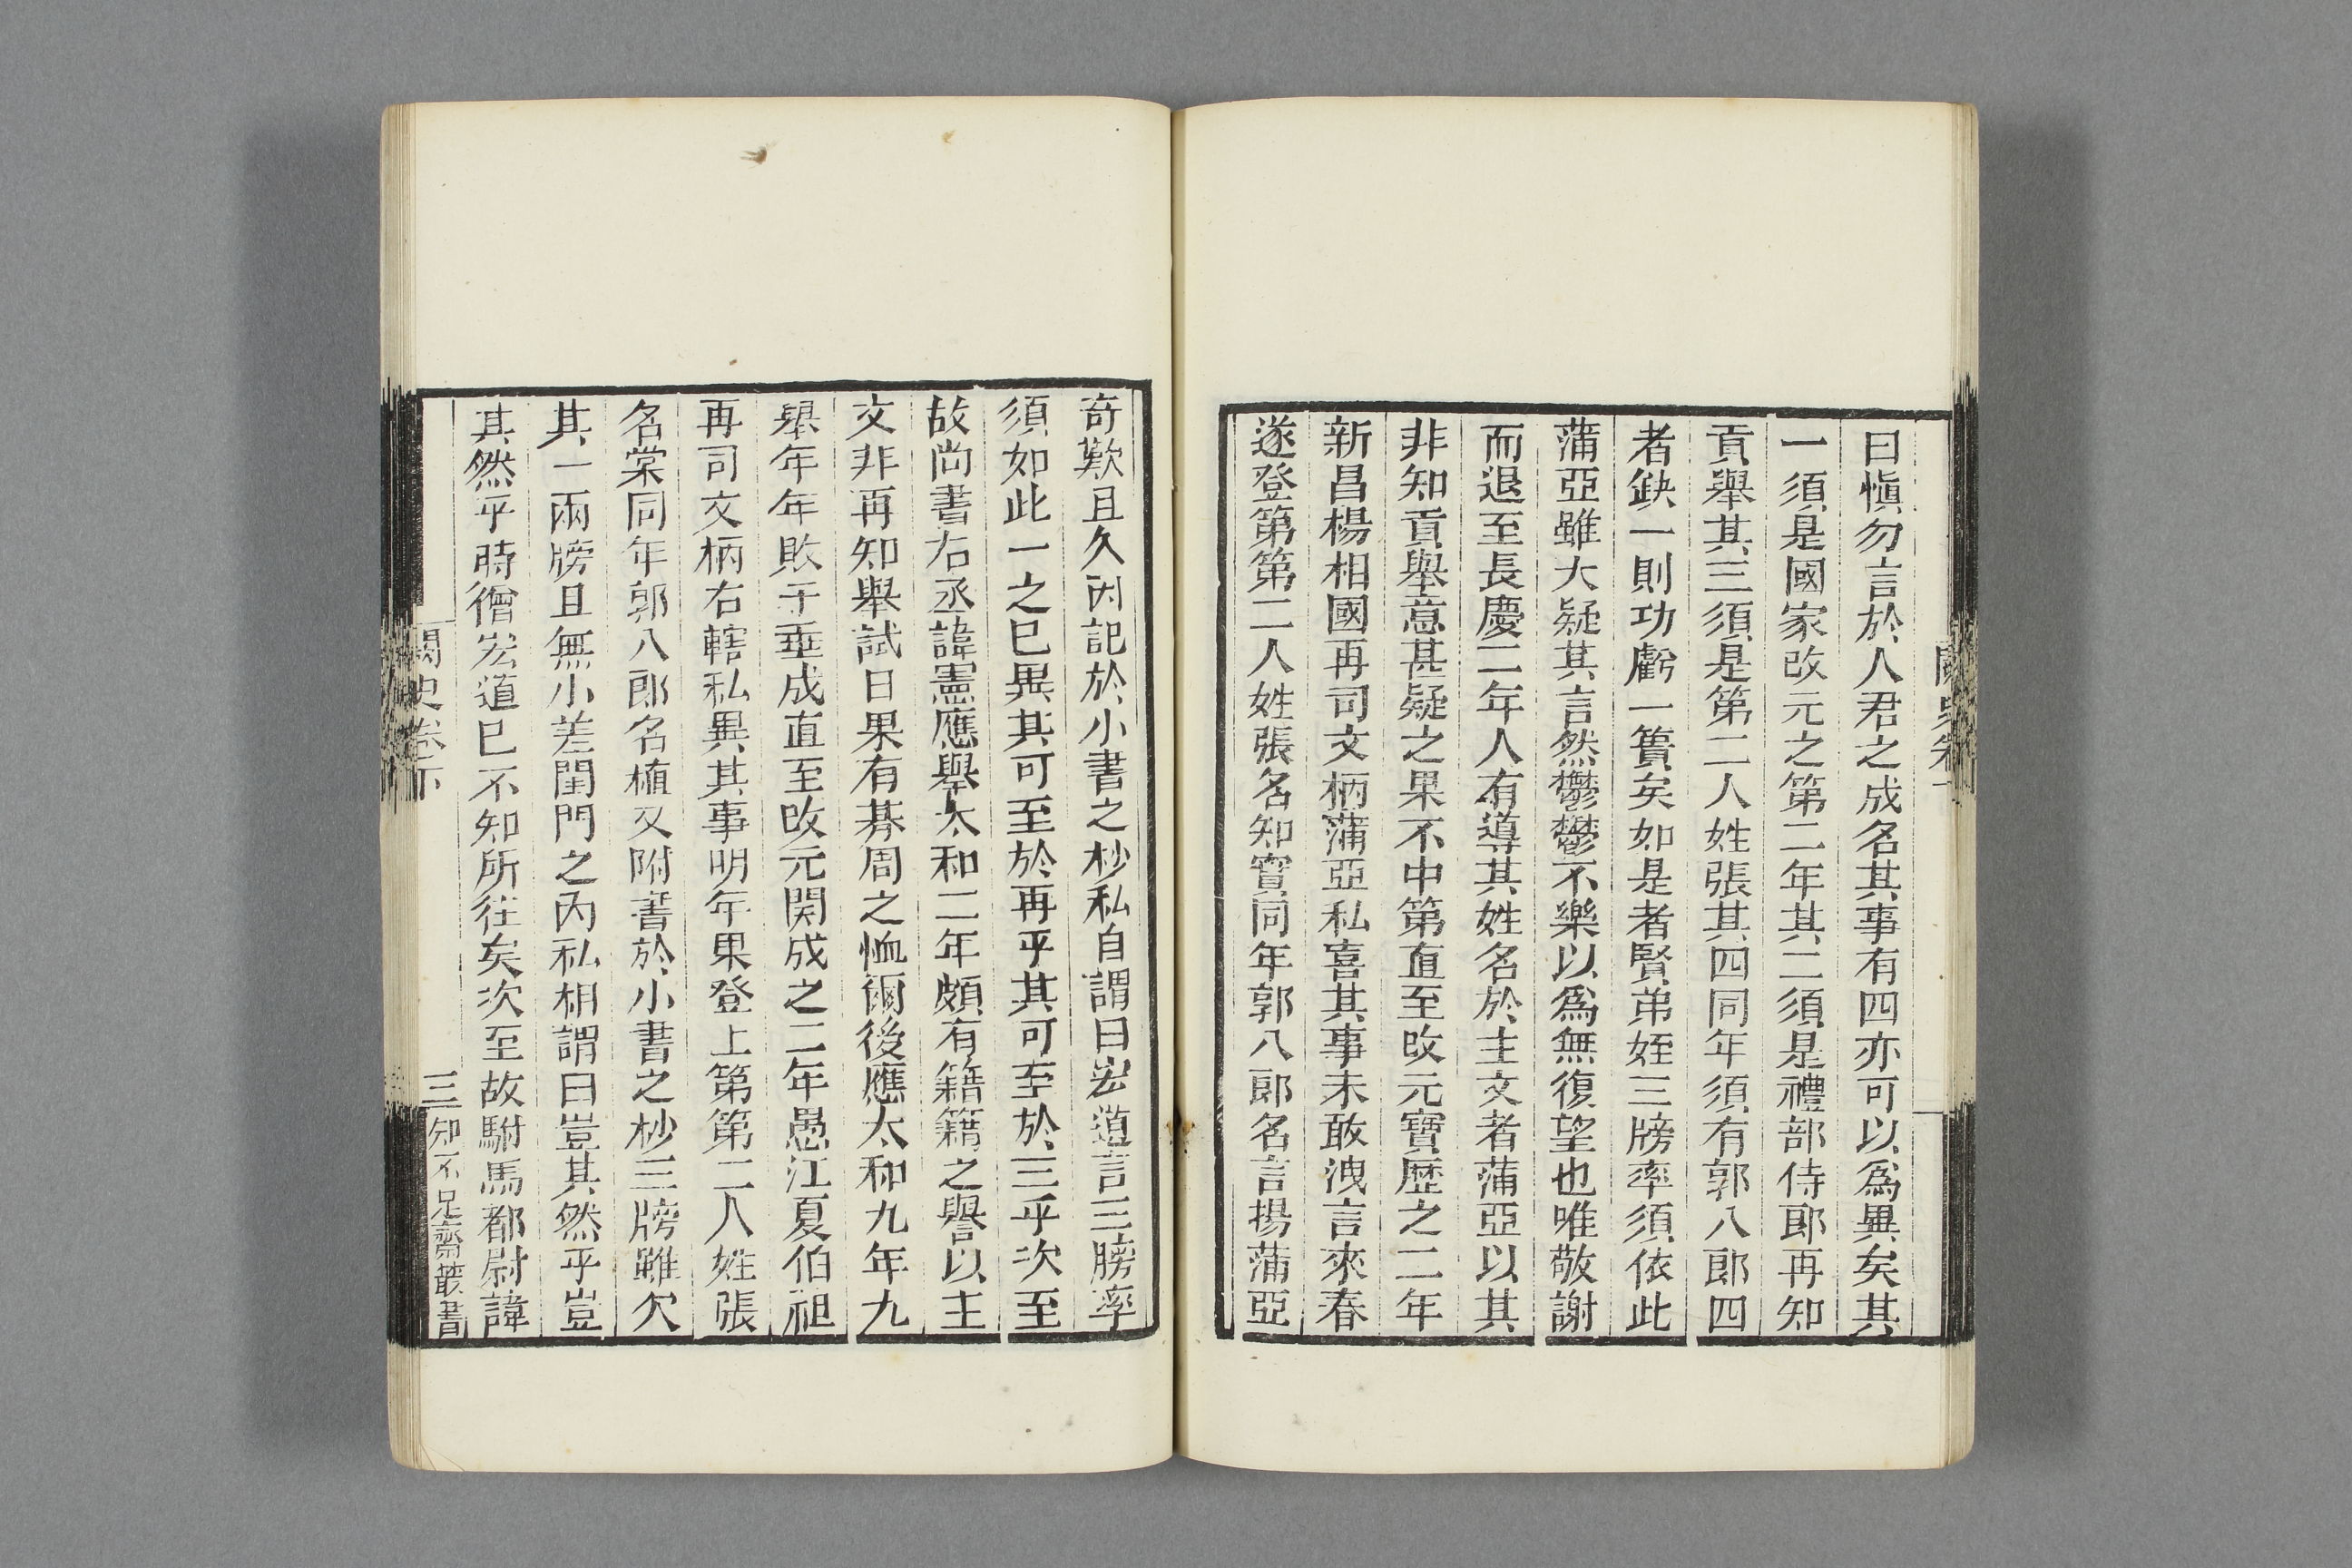 曰愼勿言於人君之成名其事有四亦可以爲異矣其
一須是國家改元之第二年其二須是禮部侍郎再知
貢舉其三須是第二人姓張其四同年須有郭八郎四
者缺一則功虧一簣矣如是者賢弟姪三牓率須依此
蒲亞雖大疑其言然鬱鬱不樂以爲無復望也唯敬謝
而退至長慶二年人有導其姓名於主文者蒲亞以其
非知貢舉意甚疑之果不中第直至改元寶歷之二年
新昌楊相國再司文柄蒲亞私喜其事未敢洩言來春
遂登第第二人姓張名知實同年郭八郎名言揚蒲亞
奇歎且久因記於小書之杪私自謂曰宏道言三牓率
須如此一之已異其可至於再乎其可至於三乎次至
故尚書右丞諱憲應舉太和二年頗有籍籍之譽以主
文非再知舉試日果有朞周之恤爾後應太和九年九
舉年年敗于垂成直至改元開成之二年愚江夏伯祖
再司文柄右轄私異其事明年果登上第第二人姓張
名棠同年郭八郎名植又附書於小書之杪三牓雖欠
其一兩牓且無小差閨門之內私相謂曰豈其然乎豈
其然乎時僧宏道已不知所往矣次至故駙馬都尉諱
闕史卷下
三
知不足齋叢書